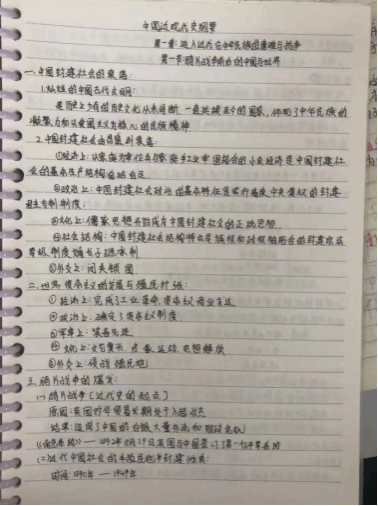 中国近现代史纲要
第一章:进入近代后中华民族的磨难与抗争
第一节 鸦片战争前后的中国与世界
一、中国封建社会的衰落:
1.灿烂的中国古代文明:
是历史上有的历史文化从未间断、一直延续至今的国家,体现了中华民族的
凝聚力和以爱国主义为核心的民族精神
2.中国封建社会由昌盛到衰落:
①经济上:以家庭为单位与家庭手工业牢固结合的小农经济是中国封建社
会的基本生产结构 自给自足
②政治上:中国封建社会政治的基本特征是实行高度中央集权的封建
君主专制制度:
③文化上:儒家思想 为中国封建社会的正统思想.
④社会结构:中国封建社会结构特点是族权和政权相结合的封建宗法
等级制度
⑤外交上:闭关锁国
二、世界资本主义的发展与殖民扩张:
① 经济上:完成了工业革命,资本权
② 政治上:确立了资本权制度
③ 军事上:装备先进
④ 文化上:文艺复兴 启蒙运动 思想解放
⑤ 外交上:侵略 殖民地
三、鸦片战争的爆发:
(一)鸦片战争(近代史的起点)
原因:英国对华贸易长期处于入超状态
结果:造成了中国的白银大量外流和财政危机
《南京条约》—— 1842年8月29日英国与中国签订了第一个不平等条约
(二)近代中国社会的半殖民地半封建
时间:1840年 —— 1949年